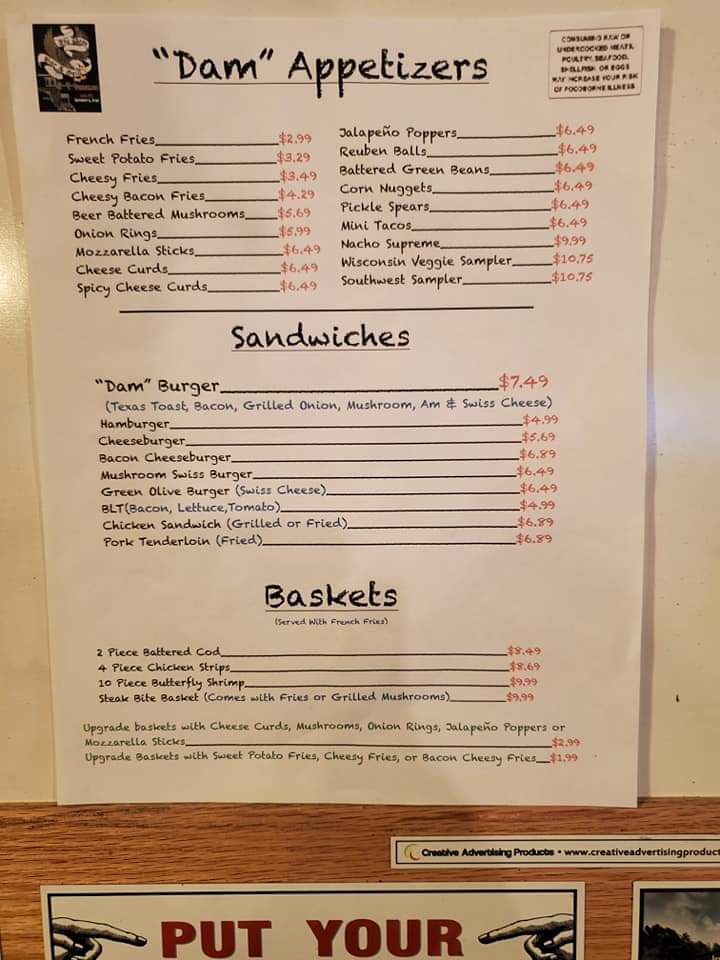 "Dam" Appetizers
CONSUMING RAW OR
UNDERCOOKED MEATS,
POULTRY, SEAFOOD,
SHELLFISH, OR EGGS
MAY INCREASE YOUR RISK
OF FOODBORNE ILLNESS
French Fries $2.99
Sweet Potato Fries $3.29
Cheesy Fries $3.49
Cheesy Bacon Fries $4.29
Beer Battered Mushrooms $5.69
Onion Rings $5.99
Mozzarella Sticks $6.49
Cheese Curds $6.49
Spicy Cheese Curds $6.49
Jalapeño Poppers $6.49
Reuben Balls $6.49
Battered Green Beans $6.49
Corn Nuggets $6.49
Pickle Spears $6.49
Mini Tacos $6.49
Nacho Supreme $9.99
Wisconsin Veggie Sampler $10.75
Southwest Sampler $10.75
Sandwiches
"Dam" Burger $7.49
(Texas Toast, Bacon, Grilled Onion, Mushroom, Am & Swiss Cheese)
Hamburger $4.99
Cheeseburger $5.69
Bacon Cheeseburger $6.89
Mushroom Swiss Burger $6.49
Green Olive Burger (Swiss Cheese) $6.49
BLT(Bacon, Lettuce,Tomato) $4.99
Chicken Sandwich (Grilled or Fried) $6.89
Pork Tenderloin (Fried) $6.89
Baskets
(Served With French Fries)
2 Piece Battered Cod $8.49
4 Piece Chicken Strips $8.69
10 Piece Butterfly Shrimp $9.99
Steak Bite Basket (Comes with Fries or Grilled Mushrooms) $9.99
Upgrade baskets with Cheese Curds, Mushrooms, Onion Rings, Jalapeño Poppers or
Mozzarella Sticks $2.99
Upgrade Baskets with Sweet Potato Fries, Cheesy Fries, or Bacon Cheesy Fries $1.99
Creative Advertising Products • www.creativeadvertisingproduct
PUT YOUR